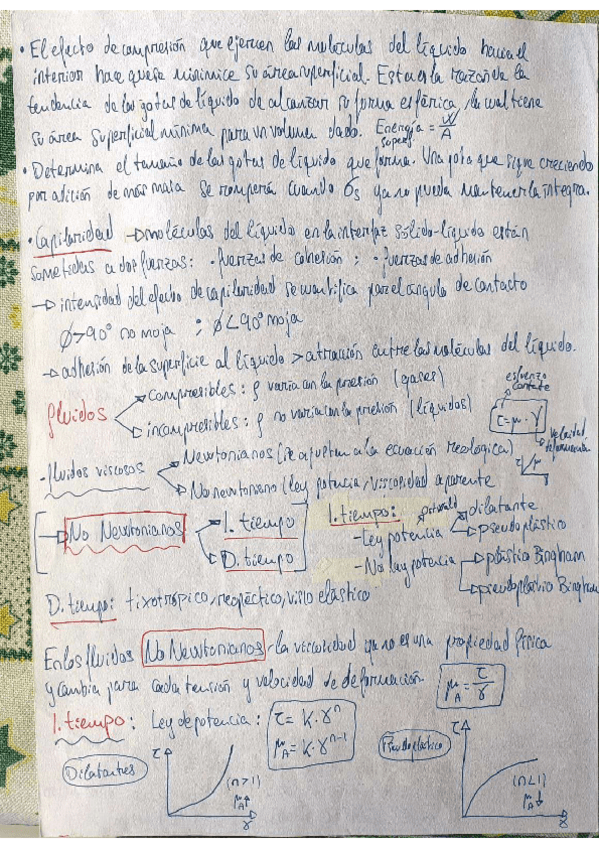 • El efecto de compresión que ejercen las moléculas del líquido hacia el
interior hace que se minimice su área superficial. Esta es la razón de la
tendencia de las gotas de líquido de alcanzar su forma esférica, la cual tiene
su área superficial mínima para un volumen dado. Energía superf. = W/A
• Determina el tamaño de las gotas de líquido que forma. Una gota que sigue creciendo
por adición de más masa se romperá cuando σs ya no pueda mantenerla íntegra.
• Capilaridad → moléculas del líquido en la interfaz sólido-líquido están
sometidas a dos fuerzas: • fuerzas de cohesión ; • fuerzas de adhesión
→ intensidad del efecto de capilaridad se cuantifica por el ángulo de contacto
φ>90° no moja ; φ<90° moja
→ adhesión de la superficie al líquido > atracción entre las moléculas del líquido.
fluidos
compresibles: ρ varia con la presión (gases)
incompresibles: ρ no varia con la presión (líquidos)
esfuerzo cortante
τ = μ · γ
velocidad deformación
- fluidos viscosos
Newtonianos (se ajustan a la ecuación reológica)
No newtoniano (ley potencia, viscosidad aparente
→ No Newtonianos
I. tiempo
D. tiempo
I. tiempo:
- Ley potencia
dilatante
pseudoplástico
- No ley potencia
plástico Bingham
pseudoplástico Bingham
D. tiempo: tixotrópico, reopéctico, viscoelástico
En los fluidos No Newtonianos la viscosidad ya no es una propiedad física
y cambia para cada tensión y velocidad de deformación. μA = τ/γ
I. tiempo: Ley de potencia: τ = K · γⁿ
μA = K · γⁿ⁻¹
Dilatantes
τ
(n>1)
μA↑
γ
Pseudoplástico
τ
(n<1)
μA↓
γ